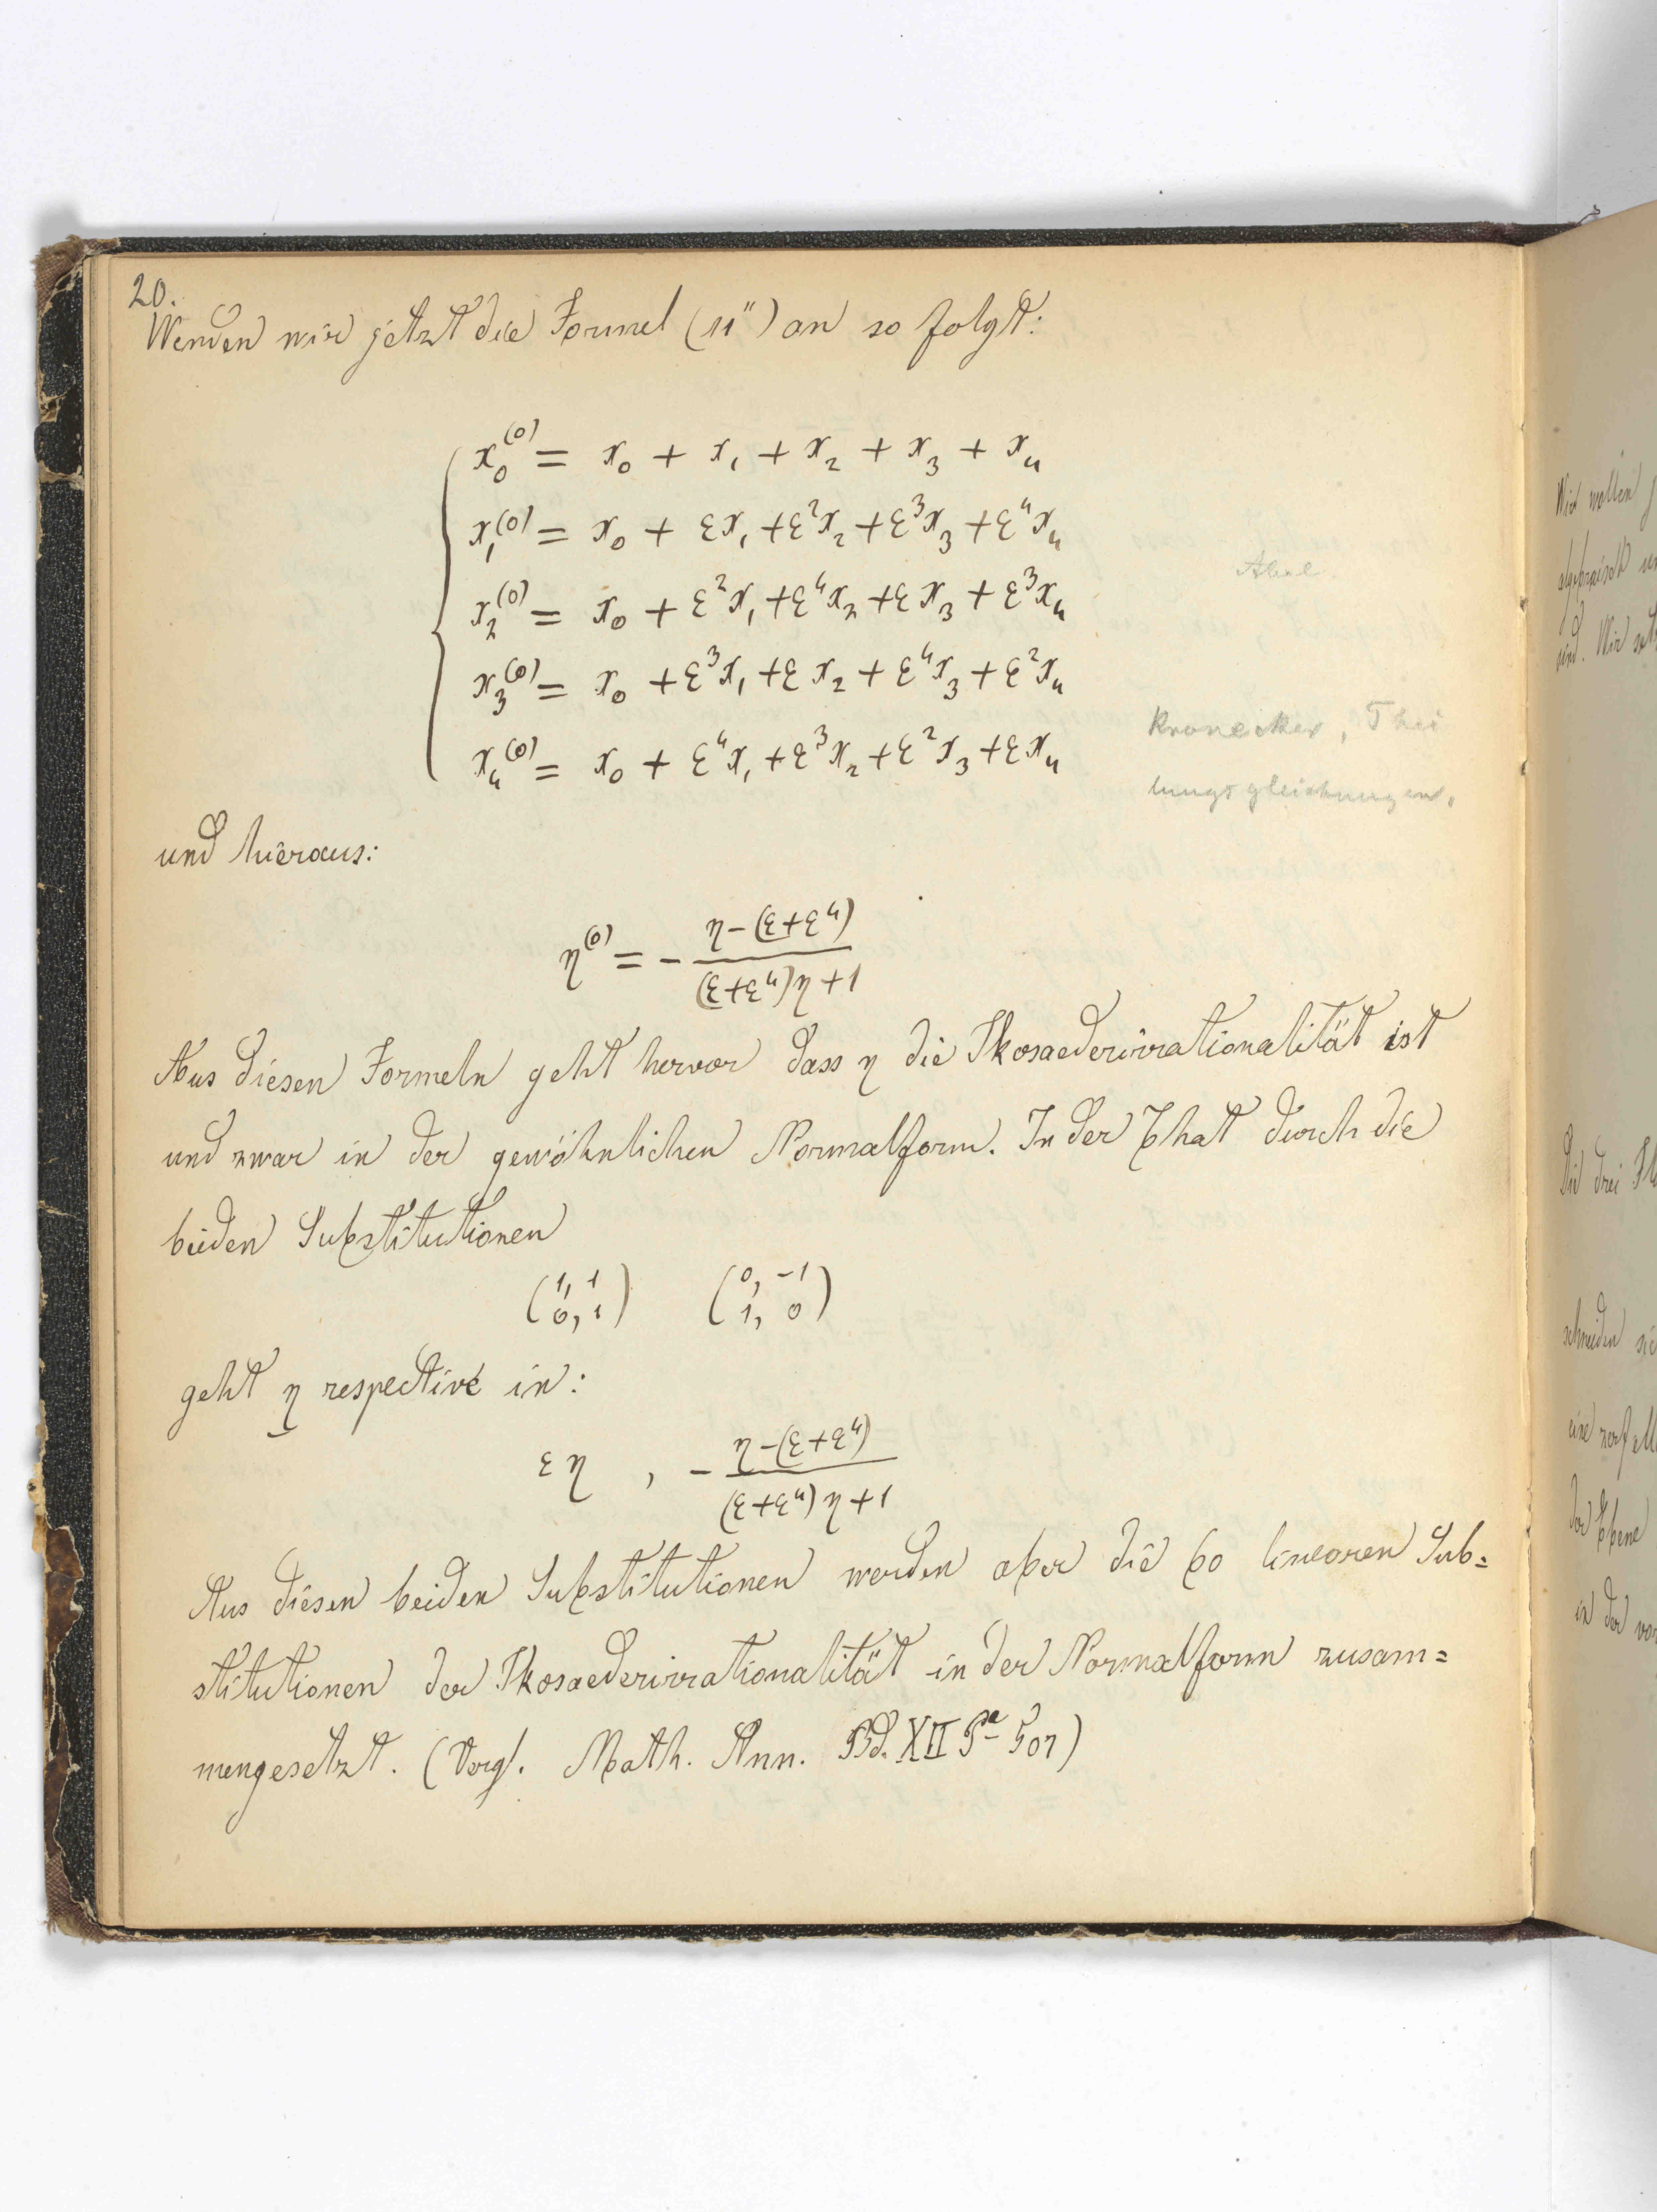 20.
Wenden wir jetzt die Formel (11") an so folgt:
x₀⁽⁰⁾ = x₀ + x₁ + x₂ + x₃ + x₄
x₁⁽⁰⁾ = x₀ + εx₁ + ε²x₂ + ε³x₃ + ε⁴x₄
Abel.
x₂⁽⁰⁾ = x₀ + ε²x₁ + ε⁴x₂ + εx₃ + ε³x₄
x₃⁽⁰⁾ = x₀ + ε³x₁ + εx₂ + ε⁴x₃ + ε²x₄
Kronecker, Thei
x₄⁽⁰⁾ = x₀ + ε⁴x₁ + ε³x₂ + ε²x₃ + εx₄
lungsgleichungen.
und hieraus:
η⁽⁰⁾ = - (η-(ε+ε⁴))/((ε+ε⁴)η+1)
Aus diesen Formeln geht hervor dass η die Ikosaederirrationalität ist
und zwar in der gewöhnlichen Normalform. In der That durch die
beiden Substitutionen
(1, 1 / 0, 1) (0, -1 / 1, 0)
geht η respective in:
εη , - (η-(ε+ε⁴))/((ε+ε⁴)η+1)
Aus diesen beiden Substitutionen werden aber die 60 linearen Sub=
stitutionen der Ikosaederirrationalität in der Normalform zusam=
mengesetzt. (Vergl. Math. Ann. Bd. XII 507)